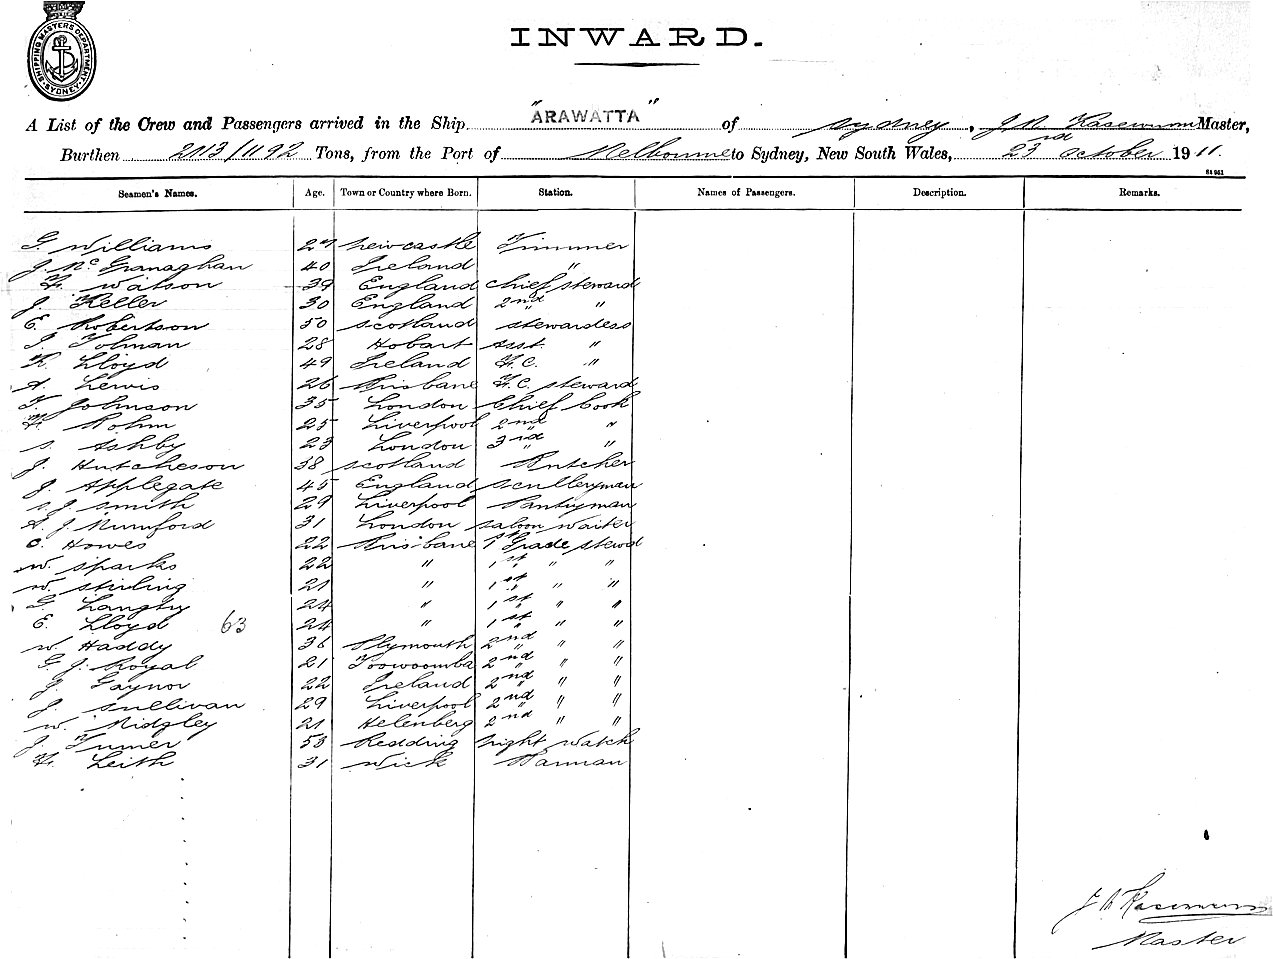 SHIPPING MASTERS DEPARTMENT SYDNEY
INWARD.
A List of the Crew and Passengers arrived in the Ship "ARAWATTA" of Sydney, Master,
Burthen 2113/1192 Tons, from the Port of Melbourne to Sydney, New South Wales, 23rd October 1911.
Seamen's Names. Age. Town or Country where Born. Station. Names of Passengers. Description. Remarks.
G. Williams 27 Newcastle Trimmer
J. McGranaghan 40 Ireland "
H. Watson 39 England Chief steward
J. Keller 30 England 2nd "
E. Robertson 50 Scotland Stewardess
J. Tolman 28 Hobart Asst. "
K. Lloyd 49 Ireland F.C. "
A. Lewis 26 Brisbane F.C. steward
T. Johnson 35 London Chief Cook
H. Rohm 25 Liverpool 2nd "
S. Ashby 23 London 3rd "
J. Hutcheson 38 Scotland Butcher
J. Applegate 45 England Sculleryman
S. J. Smith 29 Liverpool Pantryman
A. J. Mumford 31 London Saloon Waiter
C. Howes 22 Brisbane 1st Grade stewd
W. Sparks 22 " 1st " "
W. Stirling 21 " 1st " "
G. Langtry 24 " 1st " "
E. Lloyd 63 24 " 1st " "
W. Haddy 36 Plymouth 2nd " "
G. J. Royal 21 Toowoomba 2nd " "
J. Gaynor 22 Ireland 2nd " "
J. Sullivan 29 Liverpool 2nd " "
W. Ridgley 21 Helenberg 2nd " "
J. Turner 53 Redding Night Watch
H. Leith 31 Wick Barman
Master